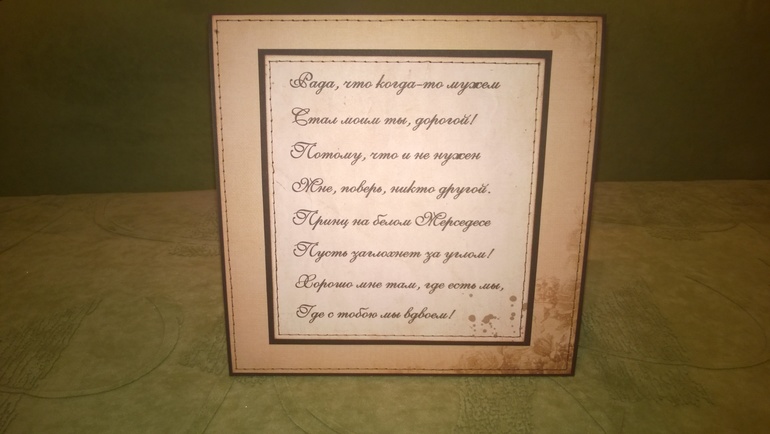 Рада, что когда-то мужем
Стал моим ты, дорогой!
Потому, что и не нужен
Мне, поверь, никто другой.
Принц на белом Мерседесе
Пусть заглохнет за углом!
Хорошо мне там, где есть мы,
Где с тобою мы вдвоем!